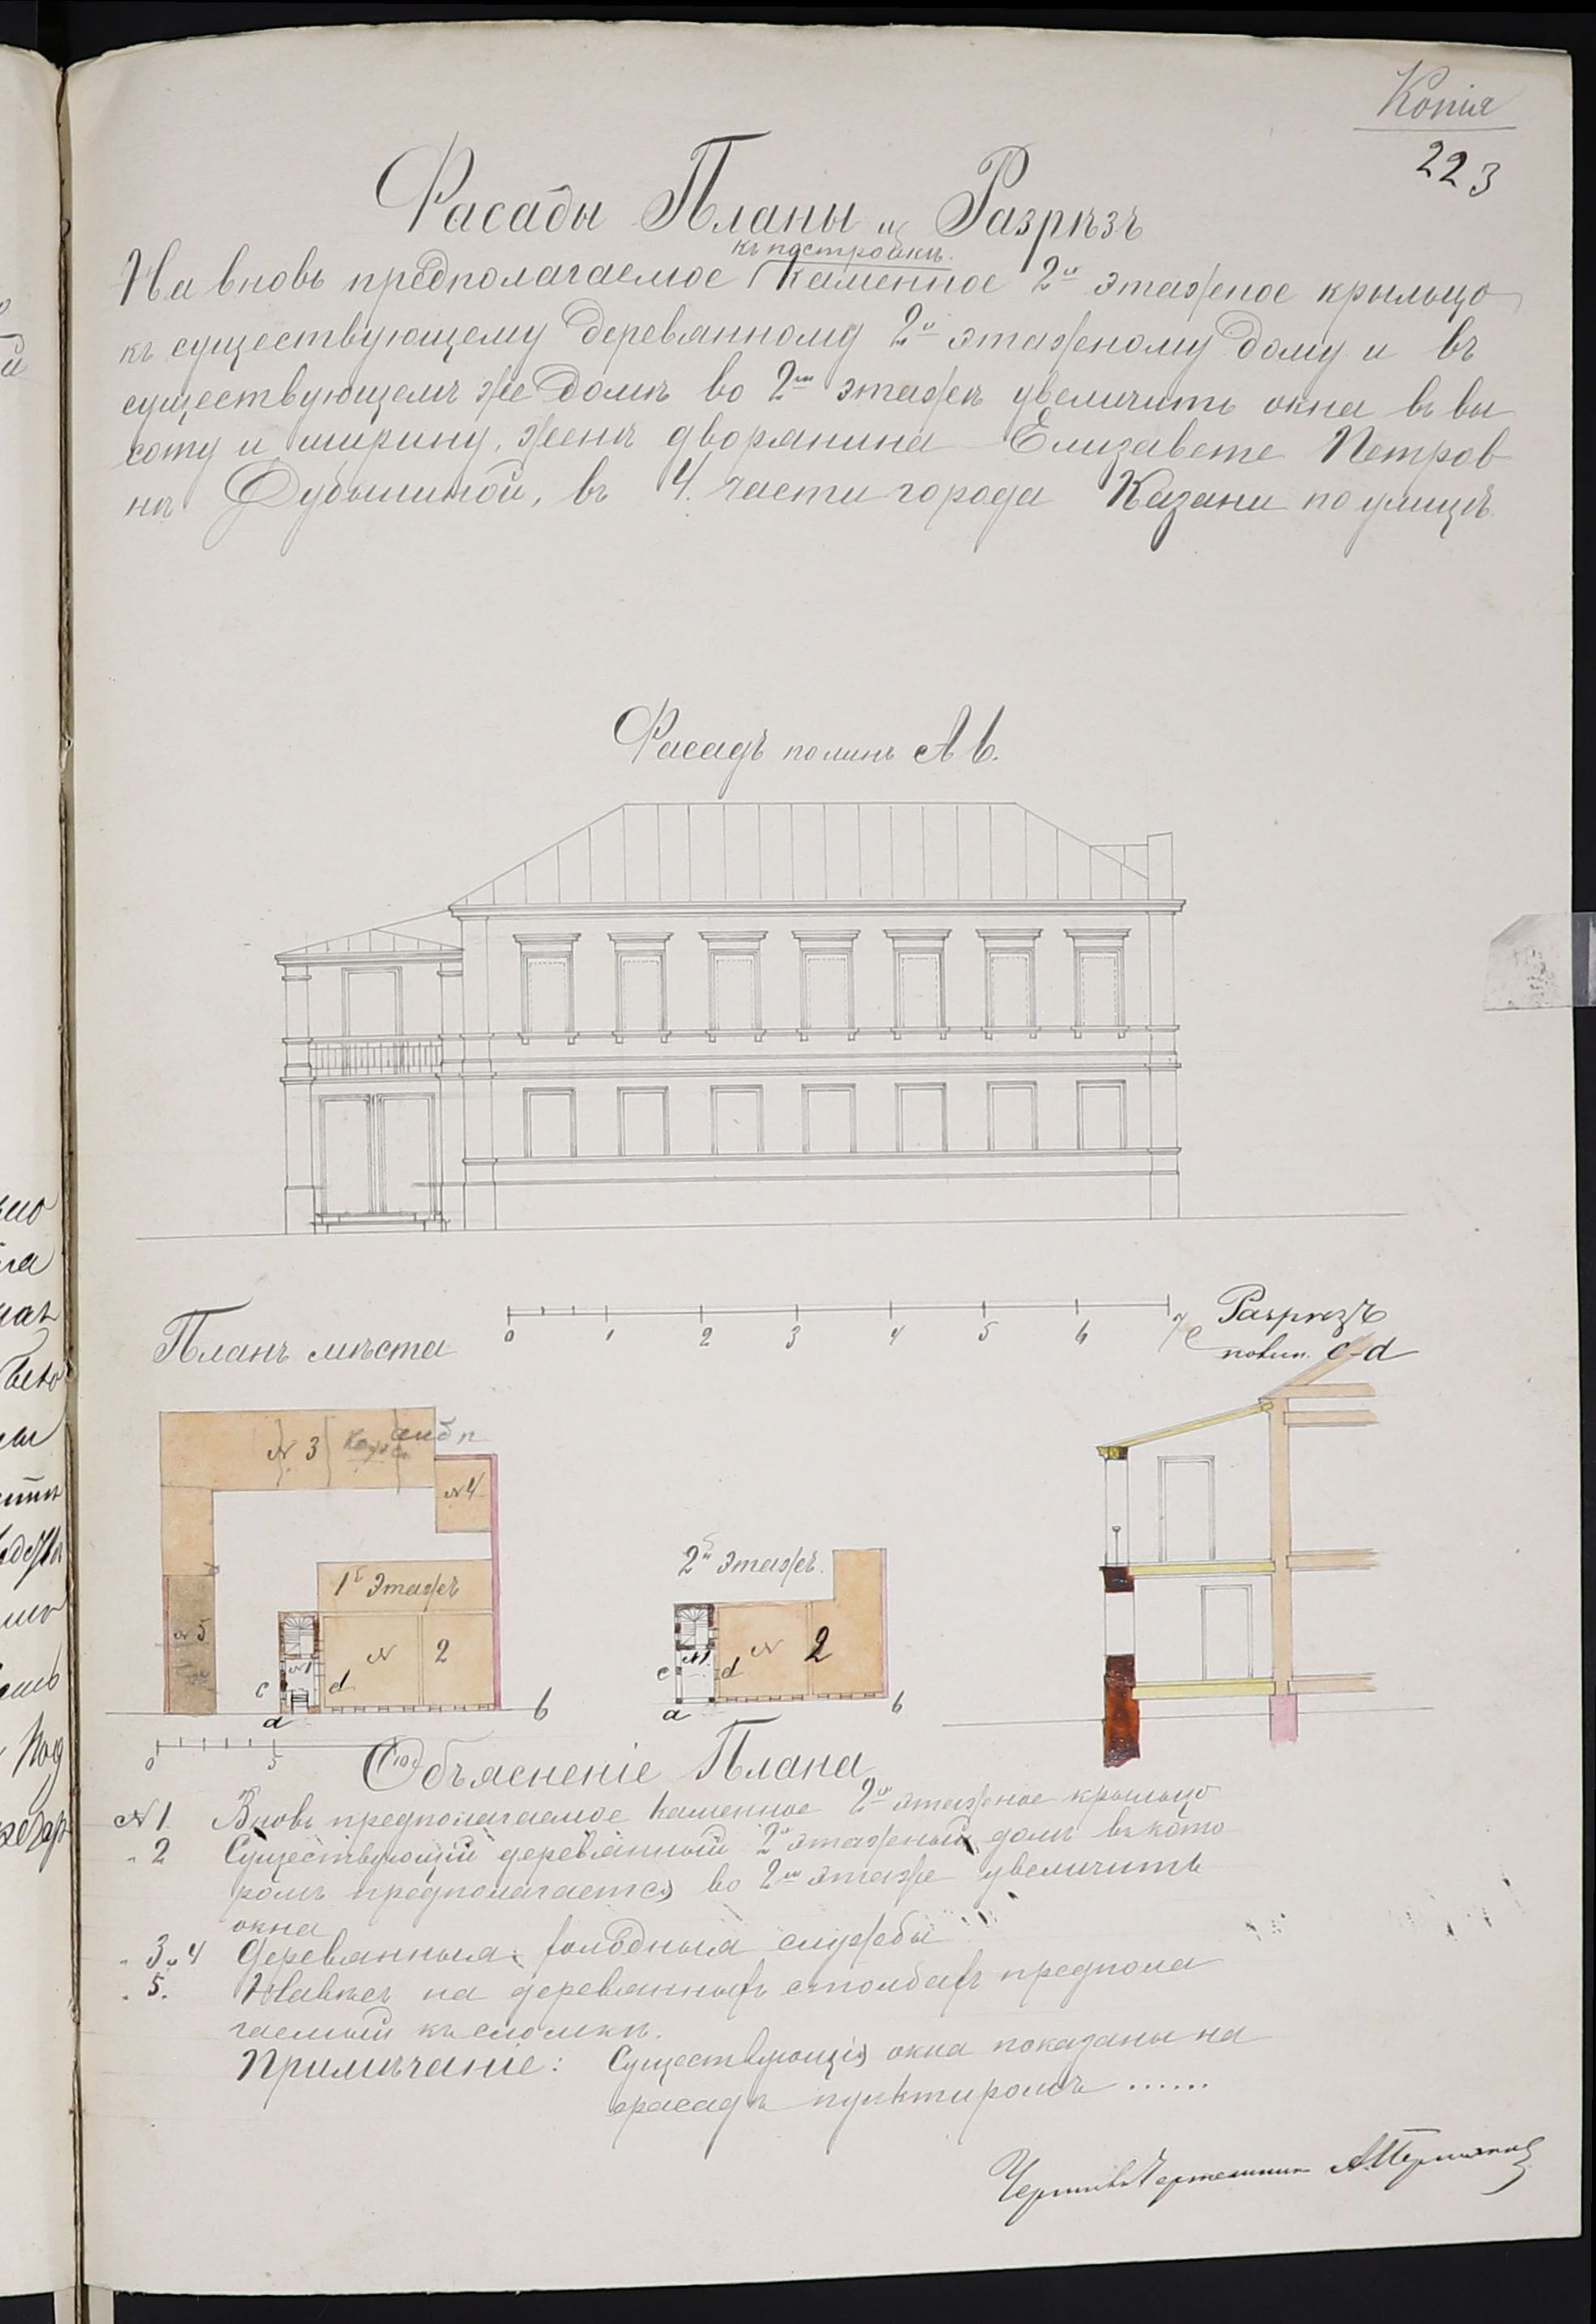 Копія
223
Фасады Планы и Разрѣзъ
къ постройкѣ.
На вновь предполагаемое каменное 2х этажное крыльцо
къ существующему деревянному 2х этажному дому и въ
существующемъ же домѣ во 2мъ этажѣ увеличить окна въ вы
соту и ширину, женѣ дворянина Елизавете Петров
нѣ въ 4. части города Казани по улицѣ
Фасадъ по линѣ А b.
Планъ мѣста
0 1 2 3 4 5 6 7 с
Разрѣзъ
по лин. c-d
№ 3
№ 4
2й Этажъ.
1й Этажъ
№ 5
№ 1
№ 2
c d
a b
№ 1
№ 2
c d
a b
0 5 10
Объясненіе Плана
№ 1 Вновь предполагаемое каменное 2х этажное крыльцо
" 2 Существующій деревянный 2х этажный домъ въ кото
ромъ предполагается во 2мъ этаже увеличить
окна
" 3 и 4 Деревянныя холодныя службы
" 5. Навѣсъ на деревянныхъ столбахъ предпола
гаемый къ сломкѣ.
Примѣчаніе: Существующія окна показаны на
фасадѣ пунктиромъ ......
Чертежникъ